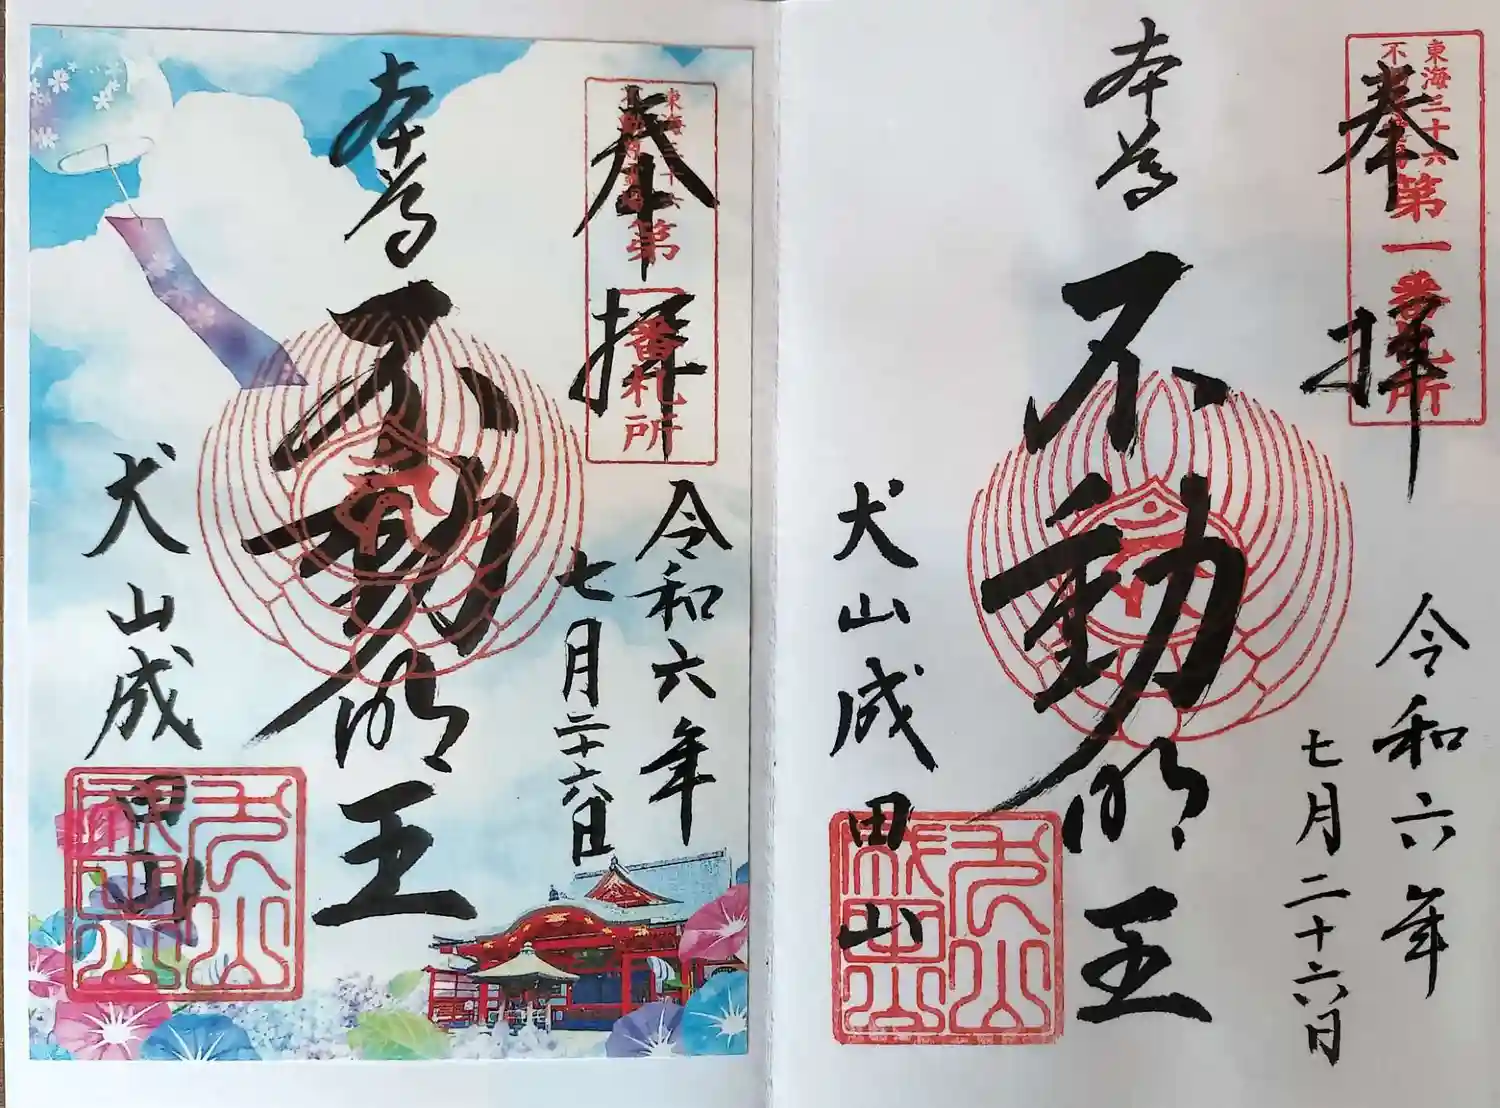 奉拝
東海三十六
不動尊霊場
第一番札所
令和六年
七月二十六日
本尊
不動明王
犬山成田山
奉拝
東海三十六
第一番札所
令和六年
七月二十六日
本尊
不動明王
犬山成田山